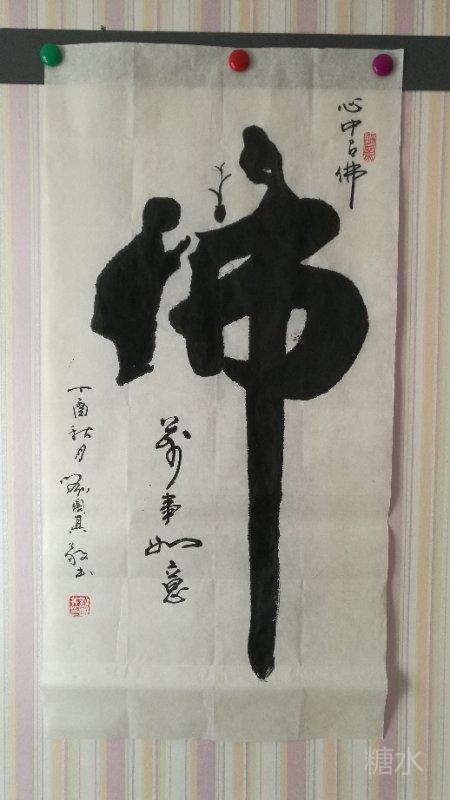 心中有佛
佛
萬事如意
丁酉秋月
敬书
糖水